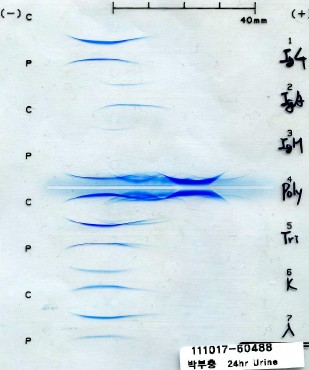 (-) C 40mm (+)
1
P IgG
2
C IgA
3
P IgM
4
C Poly
5
P Tri
6
C K
7
P λ
111017-60488
박부흥 24hr Urine